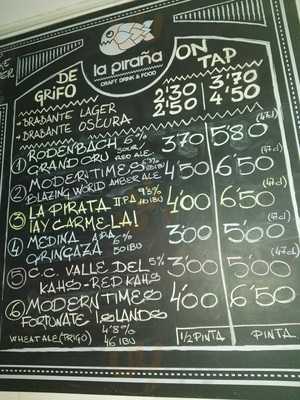 la piraña
CRAFT DRINK & FOOD
DE GRIFO
ON TAP
→ BRABANTE LAGER 2'30 3'70
→ BRABANTE OSCURA 2'50 4'50
① RODENBACH 6% 3'70 5'80 (47cl)
GRAND CRU SOUR RED ALE
② MODERN TIMES 4'50 6'50 (47cl)
BLAZING WORLD AMBER ALE
③ LA PIRATA IIPA 9'8% 4'00 6'50 (47cl)
¡AY CARMELA!
④ MEDINA APA 3'00 5'00 (47cl)
GARINGAZA 6% 50 IBU
⑤ C.C. VALLE DEL 5% 3'00 5'00 (47cl)
KAHS - RED KAHS
⑥ MODERN TIMES 4'00 6'50 (47cl)
FORTUNATE ISLANDS
WHEAT ALE (TRIGO) 4'8% 46 IBU
1/2 PINTA PINTA